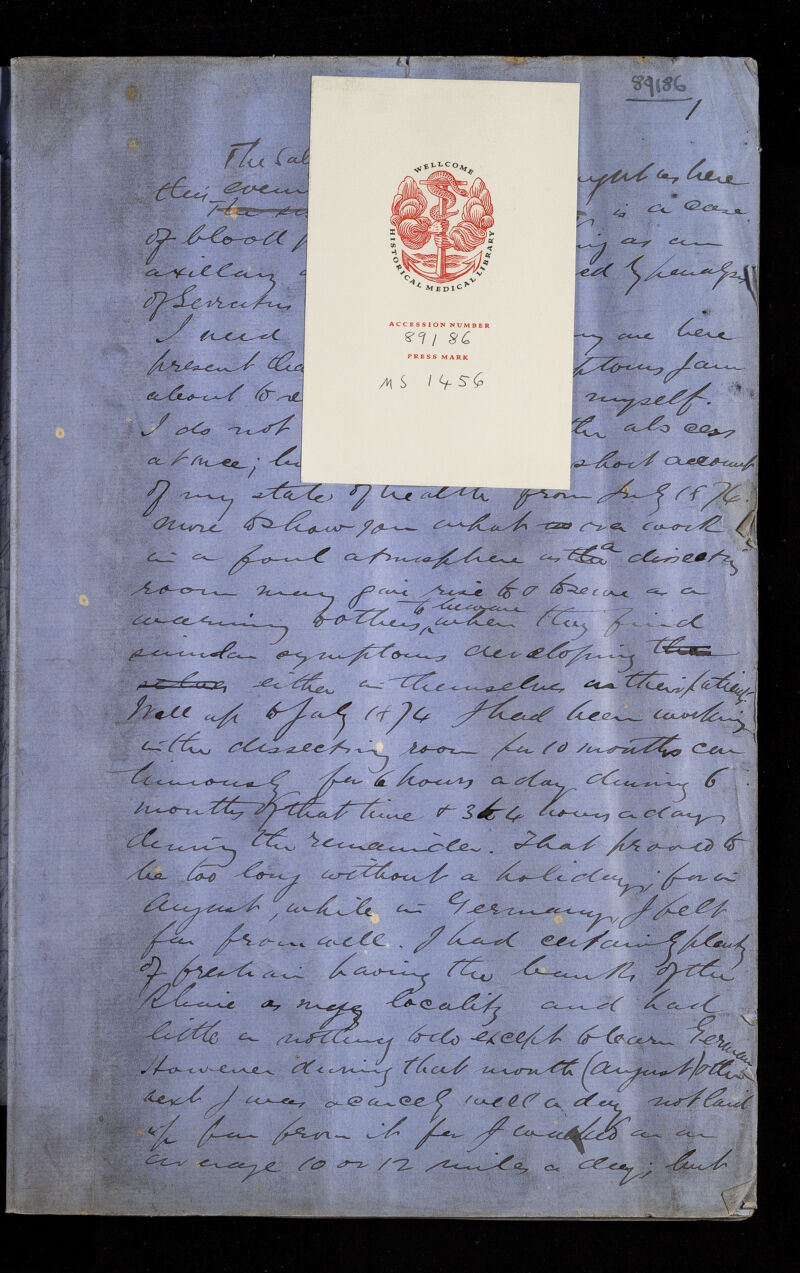 89186
1
The
ught us here
this
is a case
of blood
as an
axillary
ed by paralysis
of Serratus
I need
are here
present tha
ptoms I am
about to re
myself.
I do not
the abscess
at once; bu
short account
of my state of health from July 1874.
more to show you what over work
in a foul atmosphere as the a dissecting
room may give rise to & to serve as a
warning to others, to beware when they find
similar symptoms developing them
selves either in themselves or their patients
Well up to July 1874 I had been working
in the dissecting room for 10 months con
tinuously for 6 hours a day during 6
months of that time & 3 to 4 hours a day
during the remainder. That proved to
be too long without a holiday, for in
August, while in Germany, I felt
far from well. I had certainly plenty
of fresh air having the banks of the
Rhine as my locality and had
little or nothing to do except to learn German
However during that month (August) & the
next I was scarcely well a day not laid
up far from it for I walked on an
average 10 or 12 miles a day; but
WELLCOME
HISTORICAL MEDICAL LIBRARY
ACCESSION NUMBER
89186
PRESS MARK
MS 1456